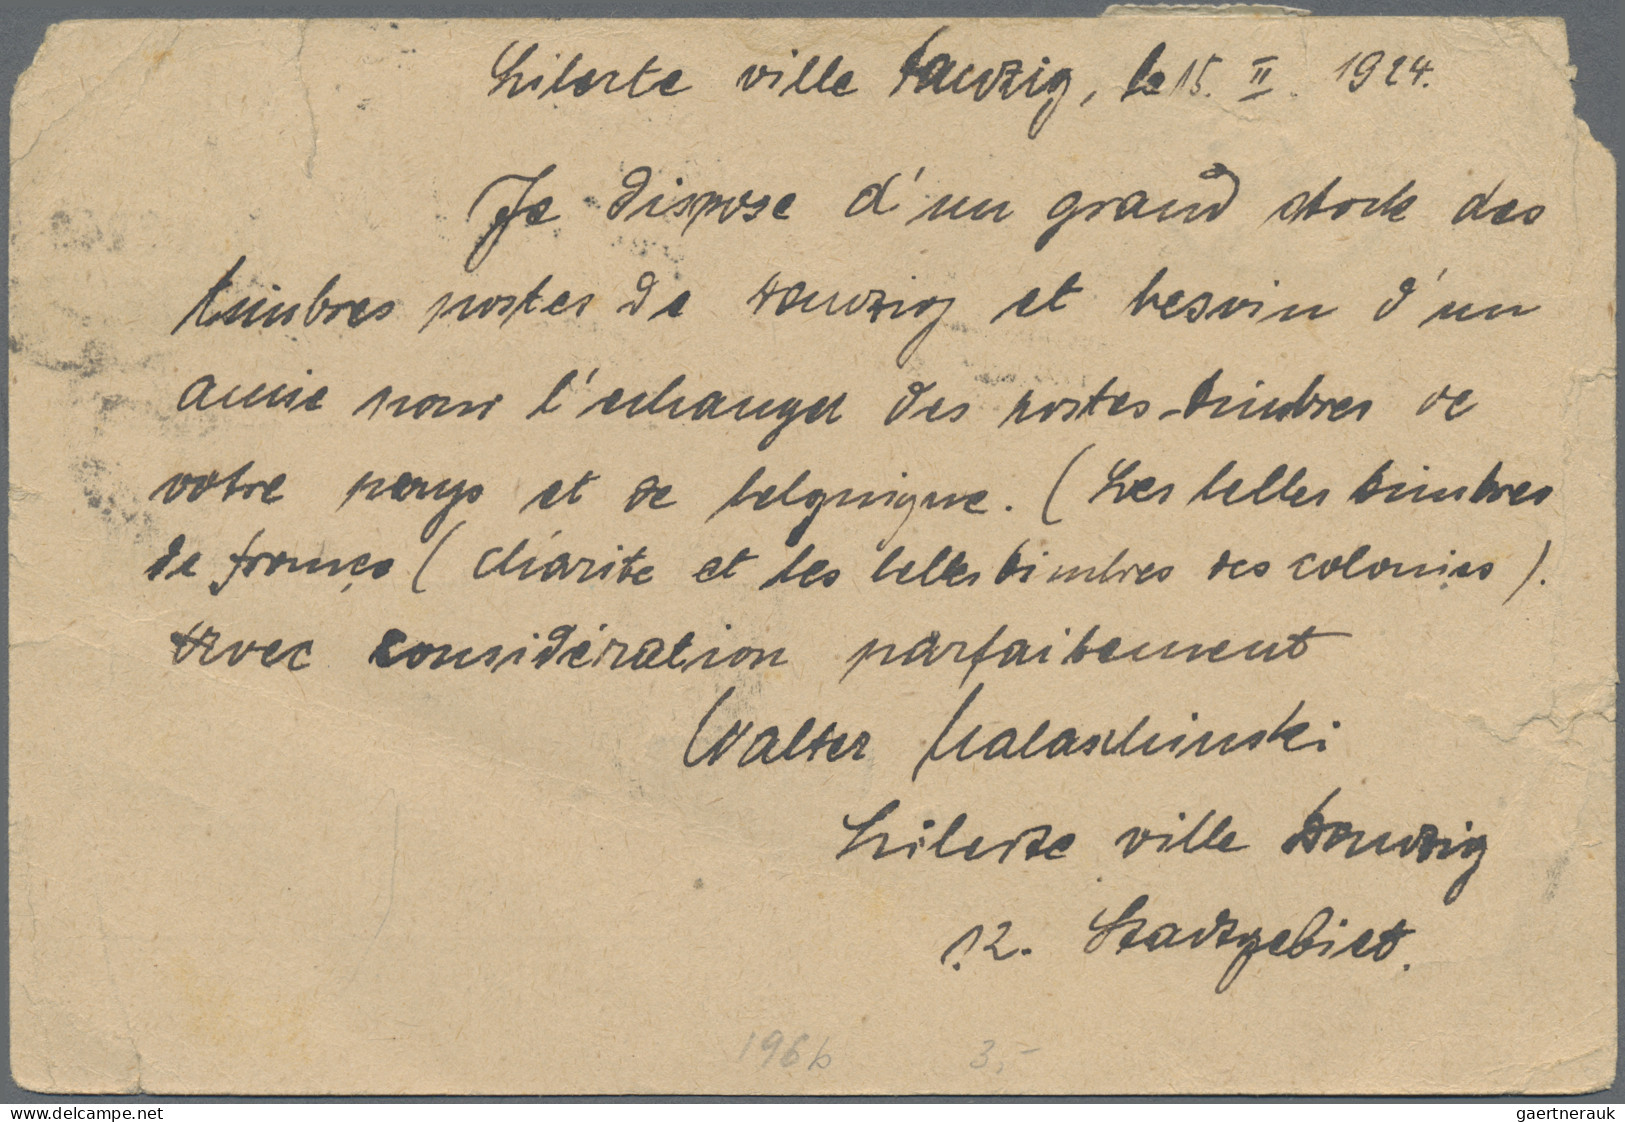 Liberte ville Danzig, le 15. II. 1924.
Je dispose d'un grand stock des
timbres postes de Danzig et besoin d'un
amie pour l'echanger des postes-timbres de
votre pays et de belguique. (Les belles timbres
de françe (charite et les belles timbres des colonies).
Avec considération parfaitement
Walter Malaschinski
Liberte ville Danzig
12. Stadtgebiet.
196b 3,-
delcampe.net
gaertnerauk